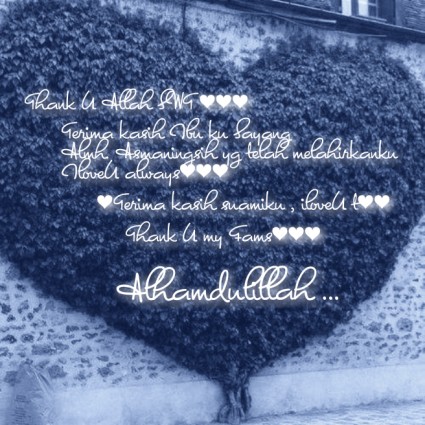 Thank U Allah SWT ♥♥♥
Terima kasih Ibu ku Sayang
Almh. Asmaningsih yg telah melahirkanku
IloveU always♥♥♥
♥Terima kasih suamiku , iloveU t♥♥
Thank U my Fams♥♥♥
Alhamdulillah ...